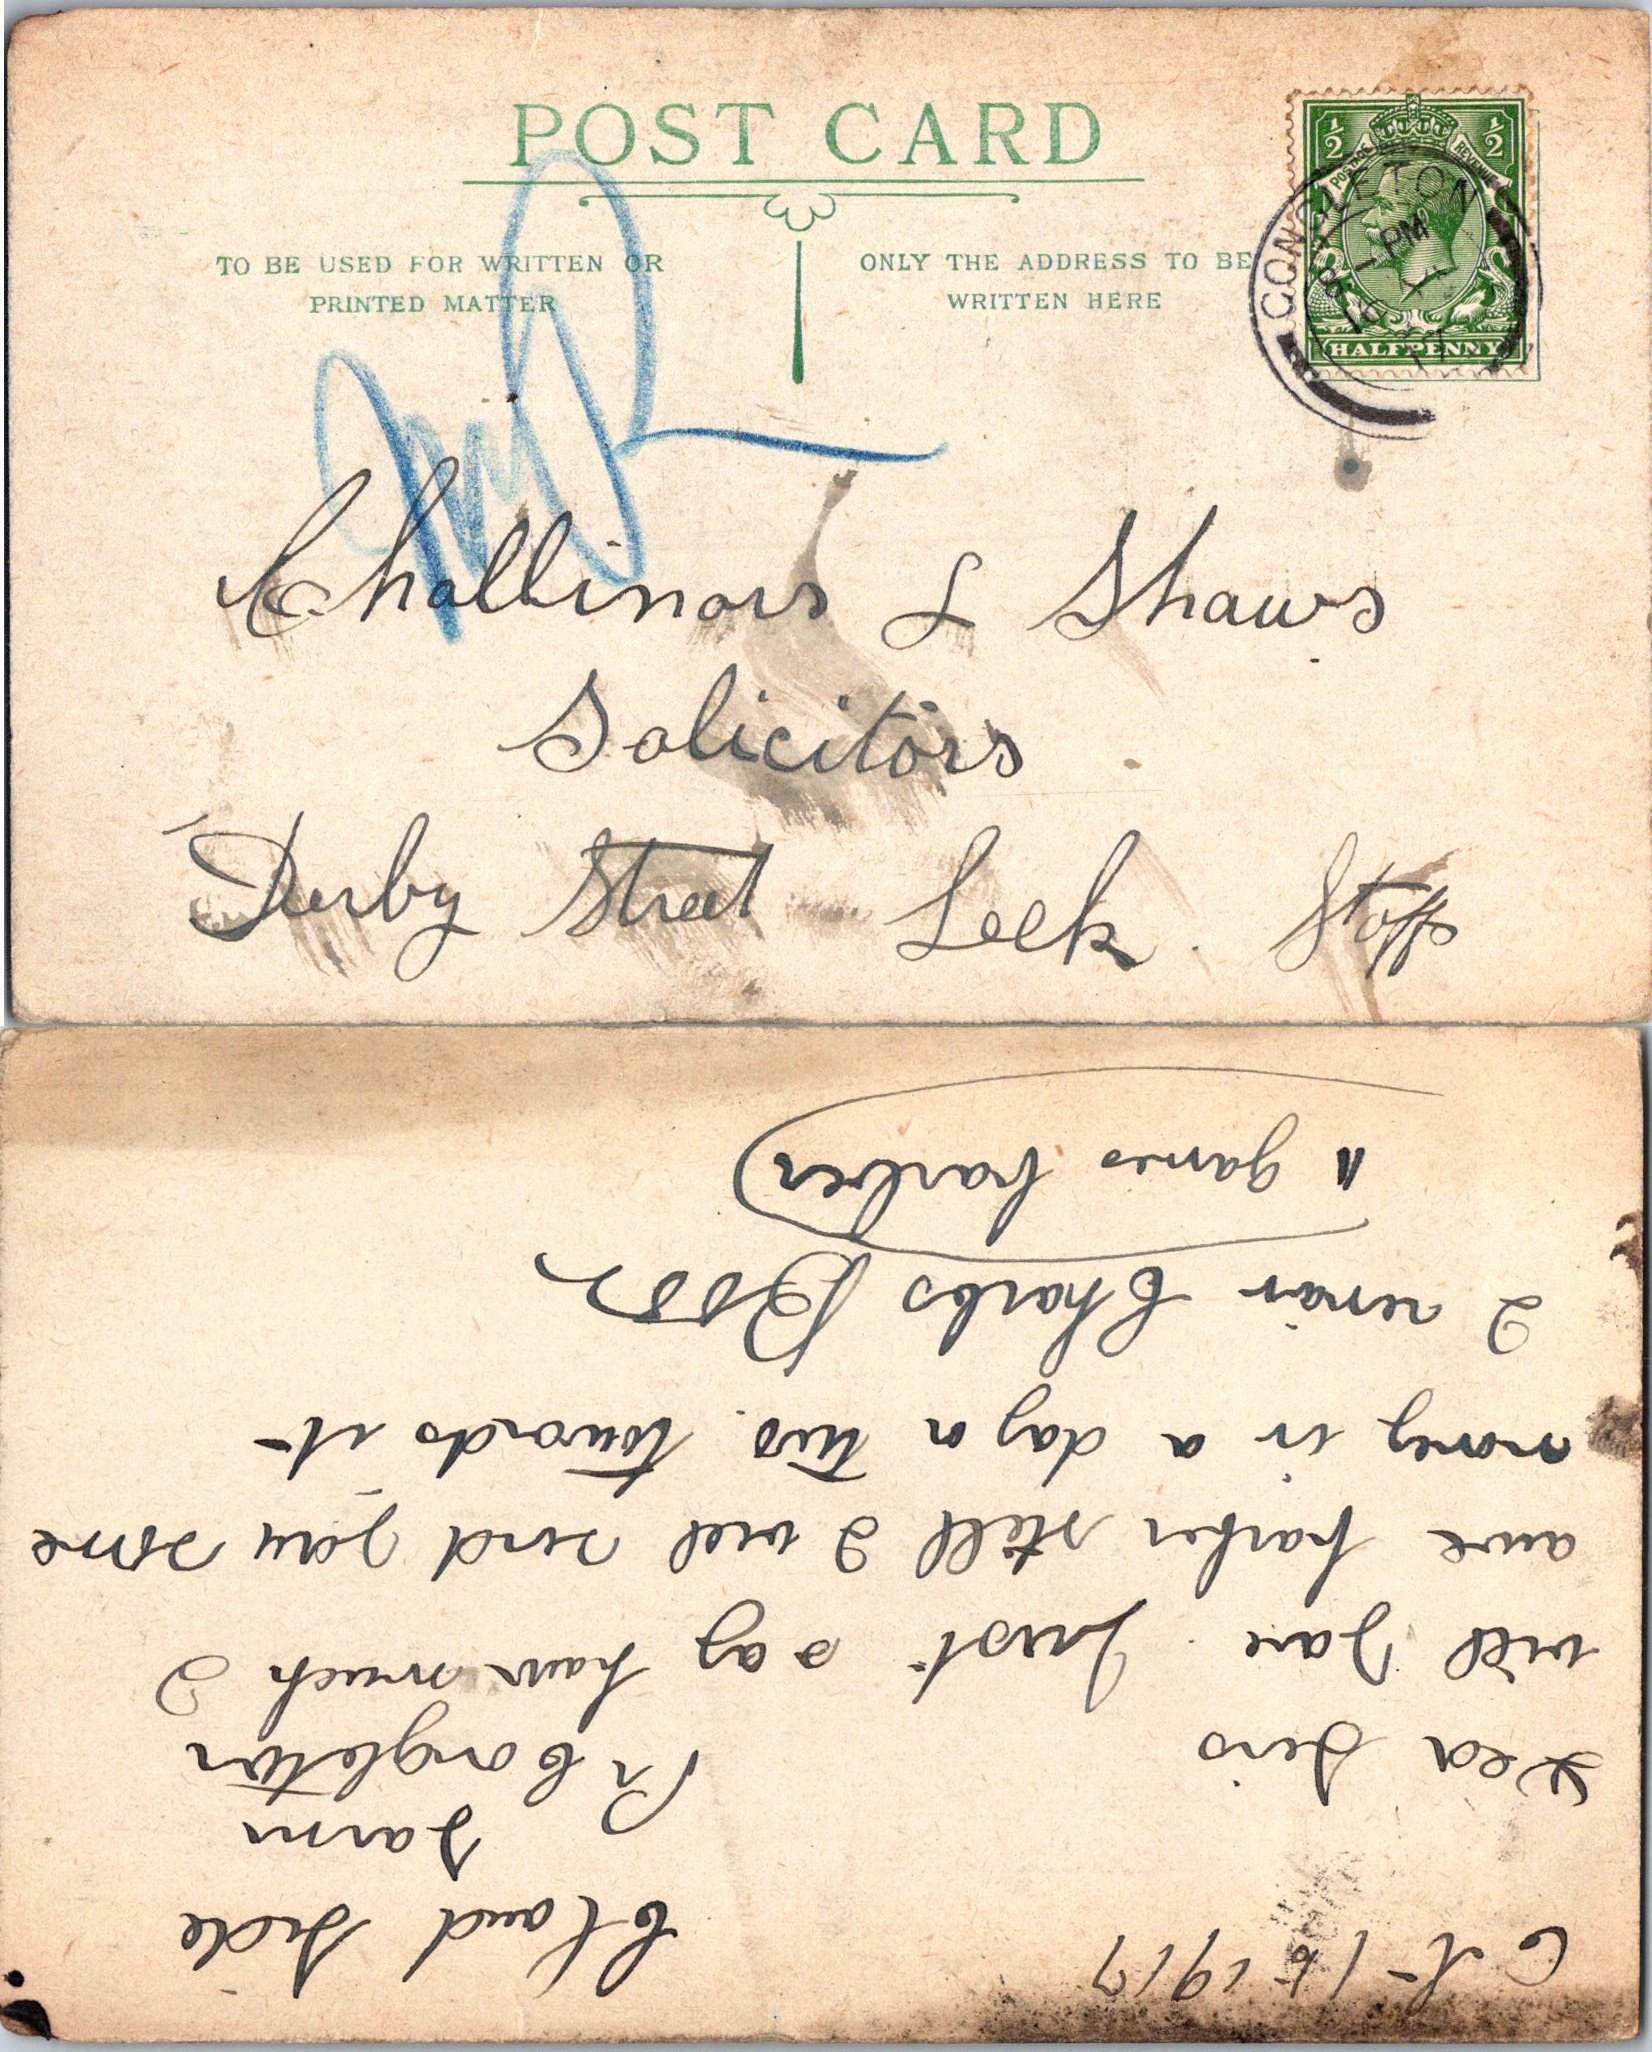 POST CARD
TO BE USED FOR WRITTEN OR
PRINTED MATTER
ONLY THE ADDRESS TO BE
WRITTEN HERE
½ ½
POSTAGE REVENUE
HALFPENNY
CONGLETON
1-PM
16
17
Challinors & Shaws
Solicitors
Derby Street Leek. Staffs
15 1917
Cloud Side
Farm
Nr Congleton
Dear Sirs
say how much I
will Just
still I will send you some
money in a day or two towards it-
I remain Charles Boon
" James